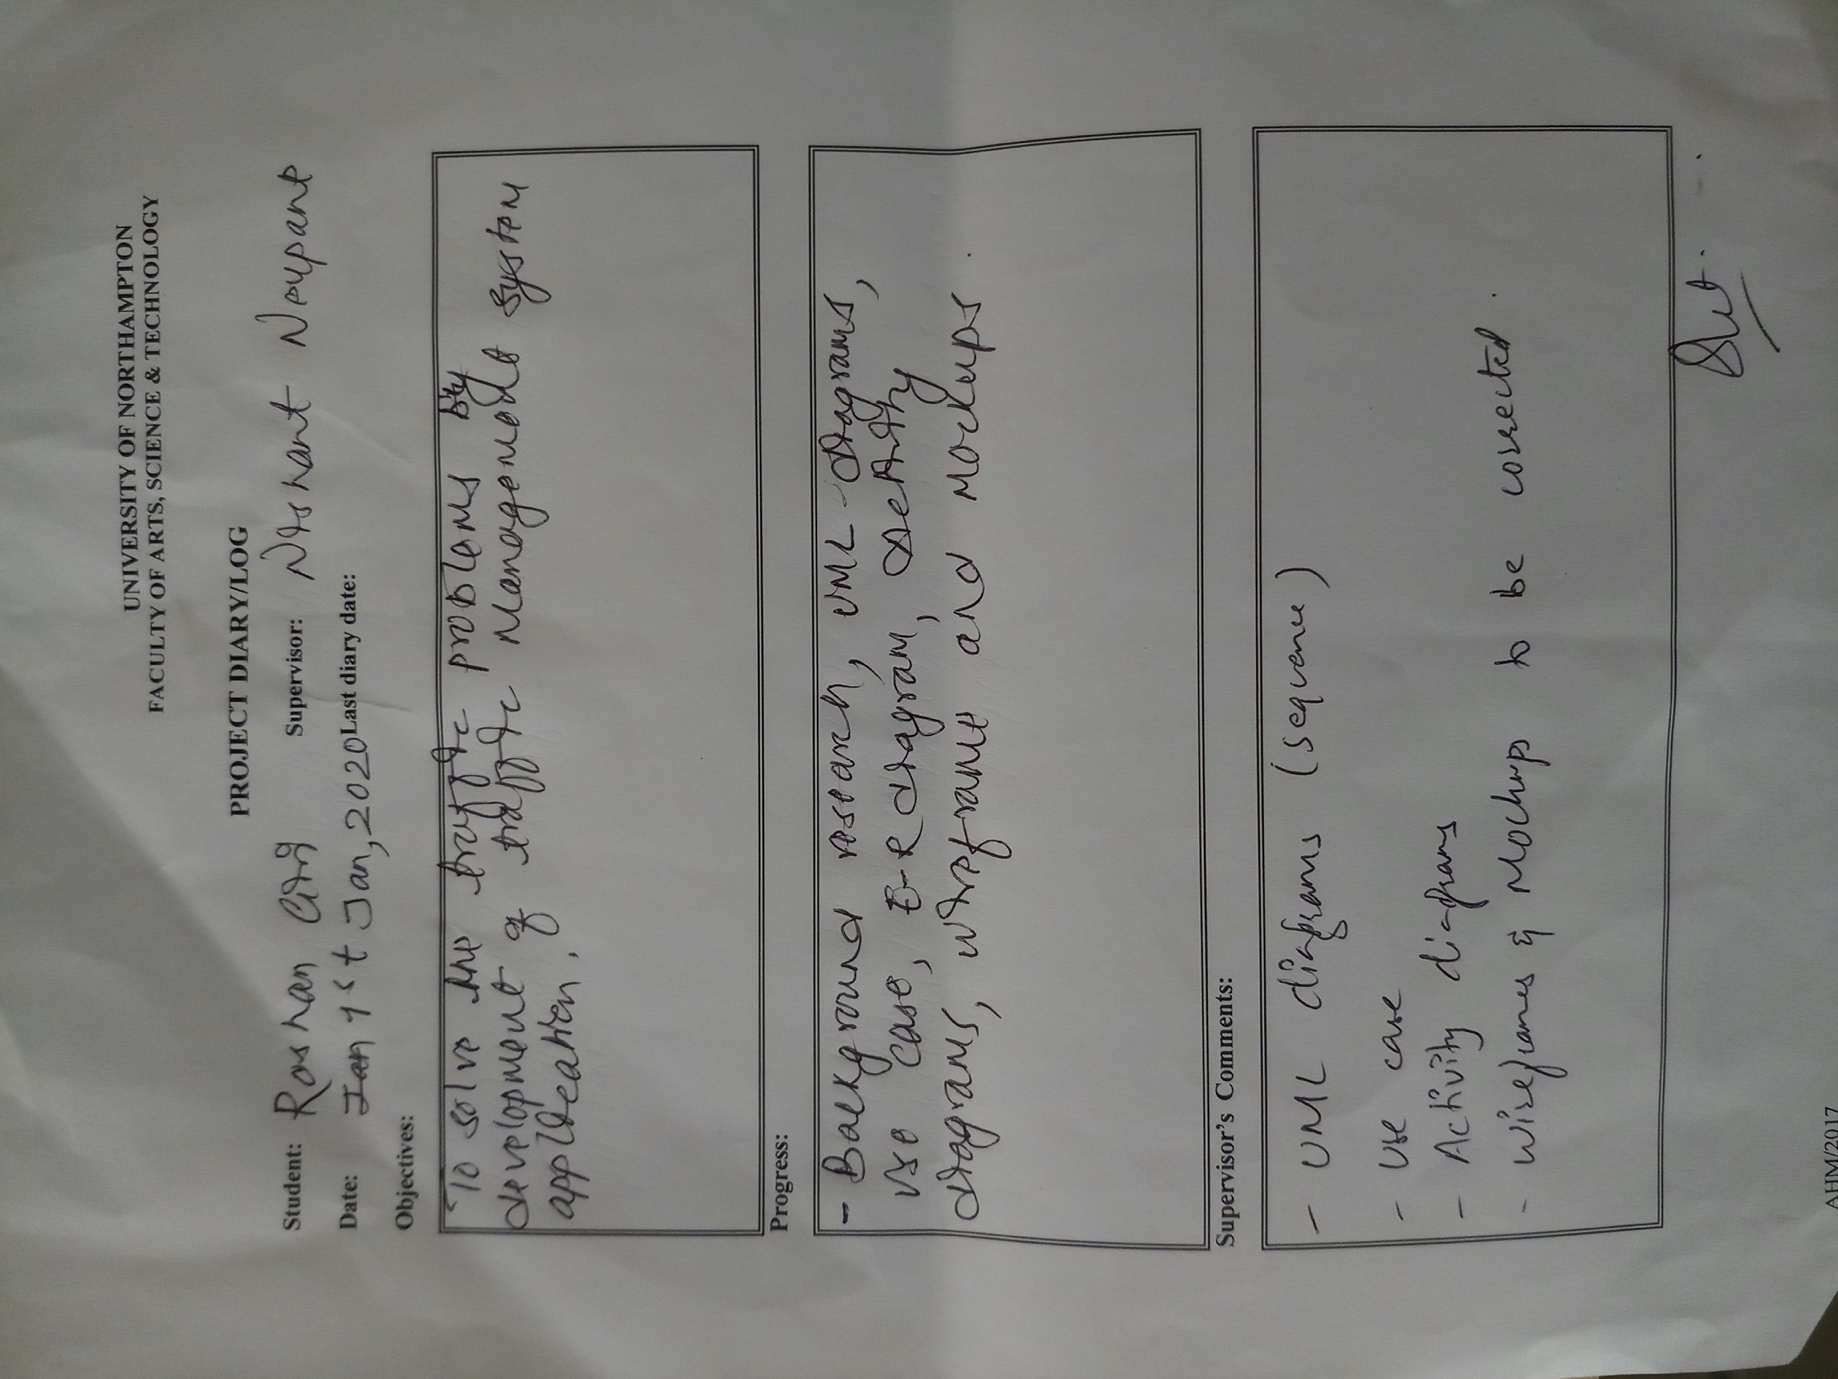 UNIVERSITY OF NORTHAMPTON
FACULTY OF ARTS, SCIENCE & TECHNOLOGY
PROJECT DIARY/LOG
Student: Roshan Supervisor: Nishant Neupane
Date: 1st Jan, 2020 Last diary date:
Objectives:
To solve the traffic problems by
development of traffic Management system
application.
Progress:
- Background research, UML-diagrams,
use case, E-R diagram, activity
diagrams, wireframe and mockups.
Supervisor's Comments:
- UML diagrams (sequence)
- Use case
- Activity diagrams
- wireframes & Mockups to be corrected.
AHM/2017